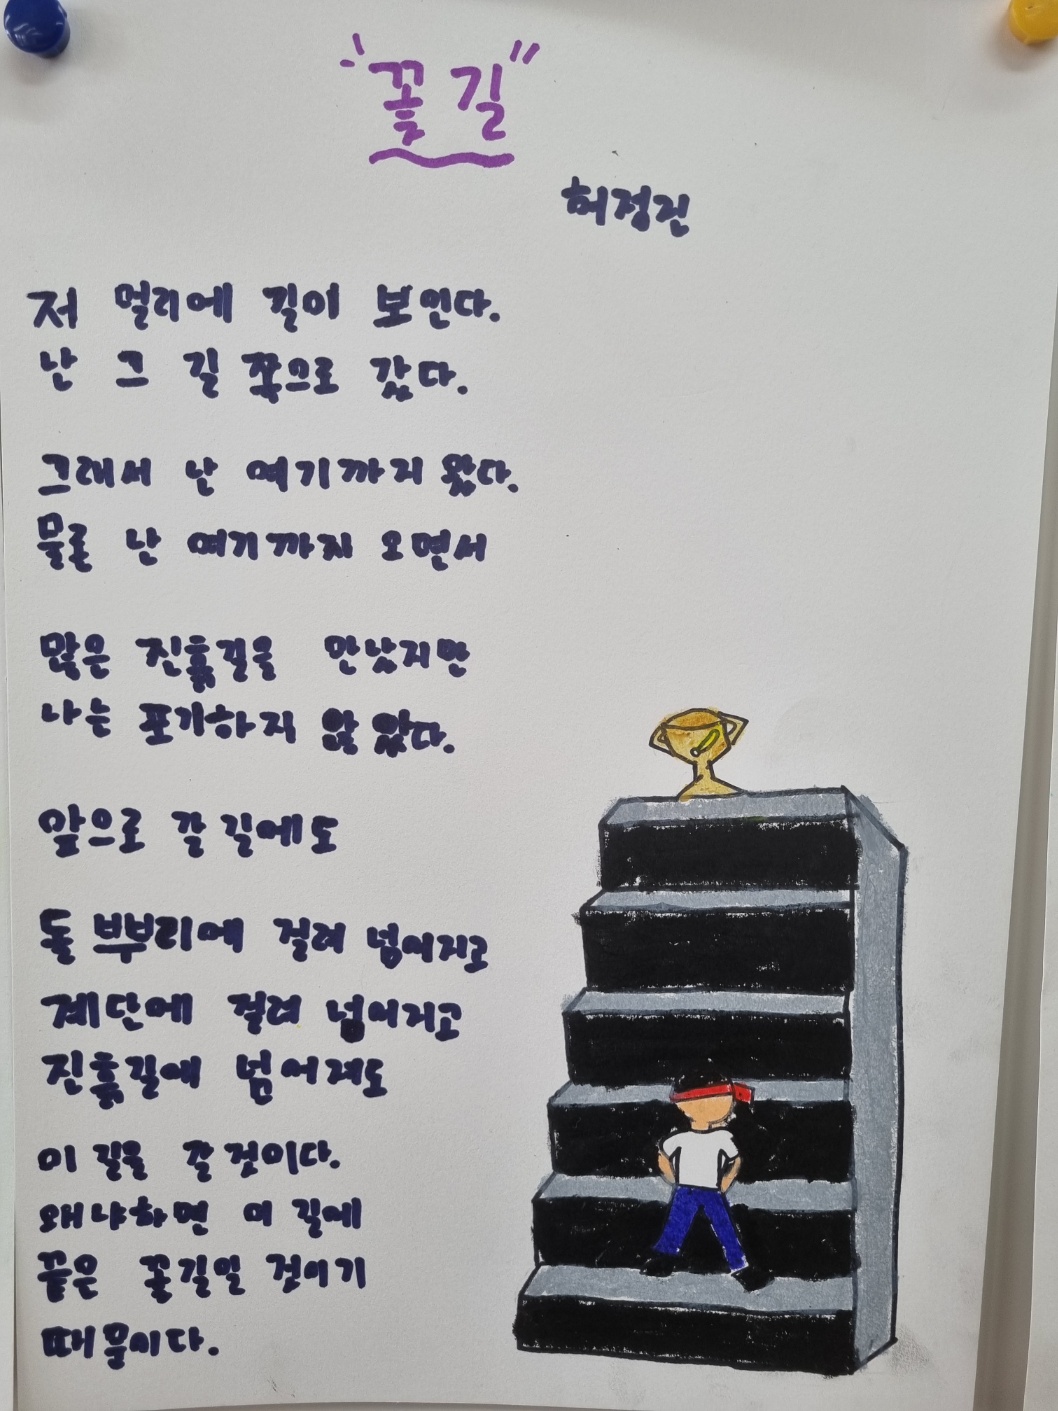 "꽃길"
허정진
저 멀리에 길이 보인다.
난 그 길 쪽으로 갔다.
그래서 난 여기까지 왔다.
물론 난 여기까지 오면서
많은 진흙길을 만났지만
나는 포기하지 않았다.
앞으로 갈 길에도
돌 뿌부리에 걸려 넘어지고
계단에 걸려 넘어지고
진흙길에 넘어져도
이 길을 갈 것이다.
왜냐하면 이 길에
끝은 꽃길일 것이기
때문이다.